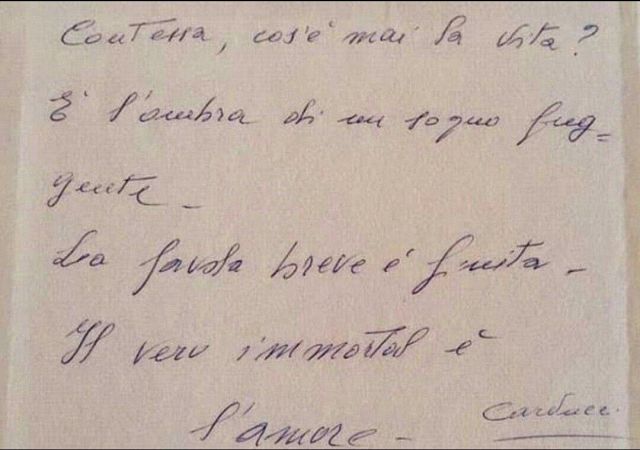 Contessa, cos'è mai la vita?
È l'ombra di un sogno fug=
gente -
La favola breve è finita -
Il vero immortal è
l'amore -
Carducci